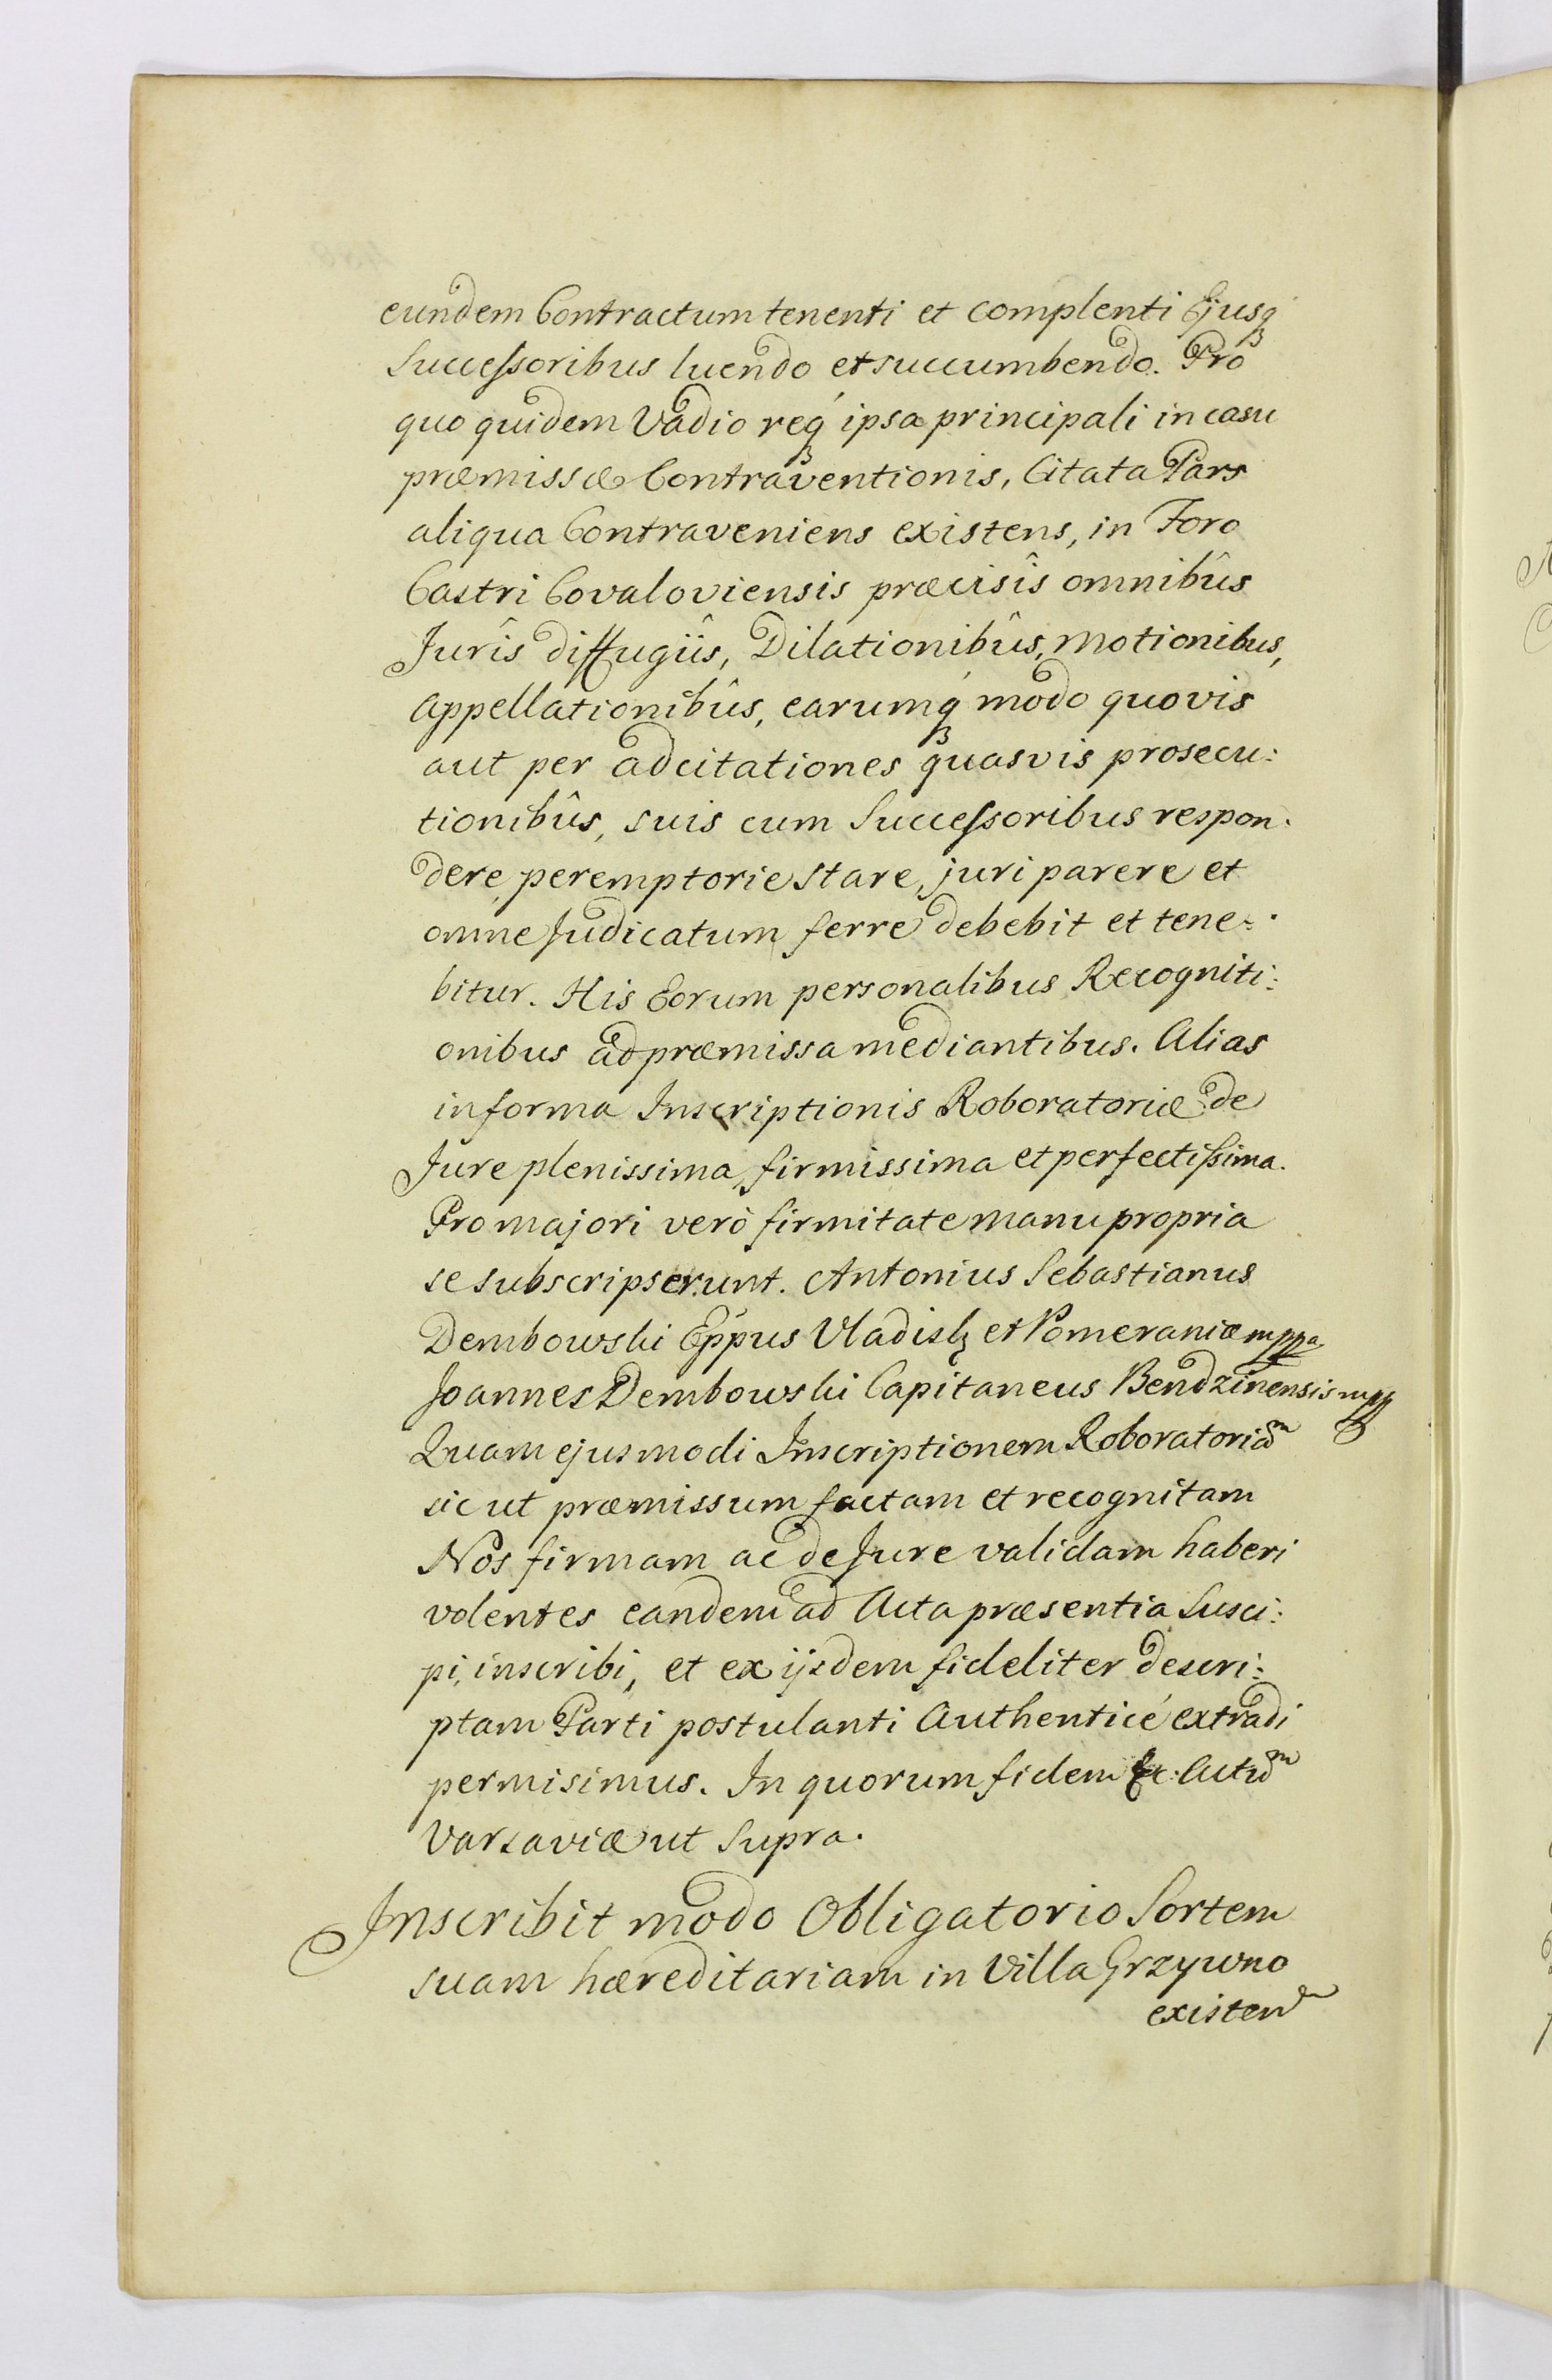 eundem Contractum tenenti et complenti Ejusq́₃
Successoribus luendo et succumbendo. Pro
quo quidem Vadio req́₃ ipsa principali in casu
præmissæ Contraventionis, Citata Pars
aliqua Contraveniens existens, in Foro
Castri Covaloviensis præcisîs omnibûs
Jurîs diffugiîs, Dilationibûs, Motionibus,
Appellationibûs, earumq́₃ modo quovis
aut per adcitationes quasvis prosecu:
tionibûs, suis cum Successoribus respon:
dere, peremptorie stare, juri parere et
omne Judicatum ferre debebit et tene:
bitur. His Eorum personalibus Recogniti:
onibus ad præmissa mediantibus. Alias
in forma Inscriptionis Roboratoriæ de
Jure plenissima, firmissima et perfectissima.
Pro majori verò firmitate manu propria
se subscripserunt. Antonius Sebastianus
Dembowski Eppus Vladislꝫ et Pomeraniæ mppa
Joannes Dembowski Capitaneus Bendzinensis mpp
Quam ejusmodi Inscriptionem Roboratoriã
sic ut præmissum factam et recognitam
Nos firmam ac de Jure validam haberi
volentes eandem ad Acta præsentia Susci:
pi, inscribi, et ex ijsdem fideliter descri:
ptam Parti postulanti Authenticè extradi
permisimus. In quorum fidem &c: Actũ
Varsaviæ ut Supra.
Inscribit modo Obligatorio Sortem
suam hæreditariam in Villa Grzywno
existen